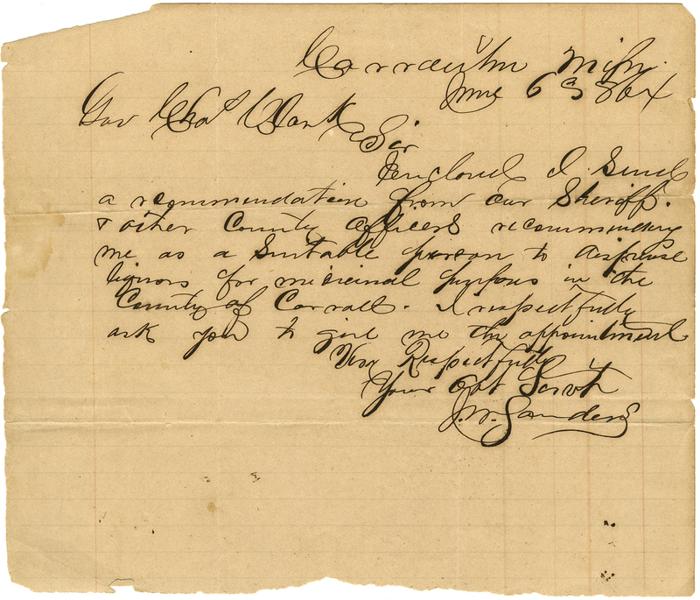 Carrollton Miss.
June 6th 1864
Gov Chas Clark
Sir
Enclosed I Send
a recommendation from our Sheriff.
& other County officers recommending
me as a Suitable person to dispense
liquors for medicinal purposes in the
County of Carroll. I respectfully
ask you to give me the appointment
Very Respectfully
Your Obt Servt
J. W. Sanders